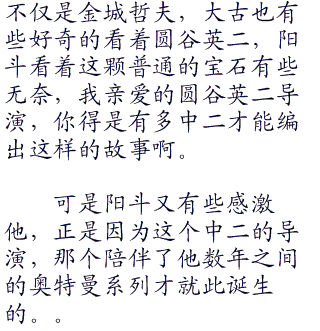 不仅是金城哲夫，大古也有
些好奇的看着圆谷英二，阳
斗看着这颗普通的宝石有些
无奈，我亲爱的圆谷英二导
演，你得是有多中二才能编
出这样的故事啊。
可是阳斗又有些感激
他，正是因为这个中二的导
演，那个陪伴了他数年之间
的奥特曼系列才就此诞生
的。。